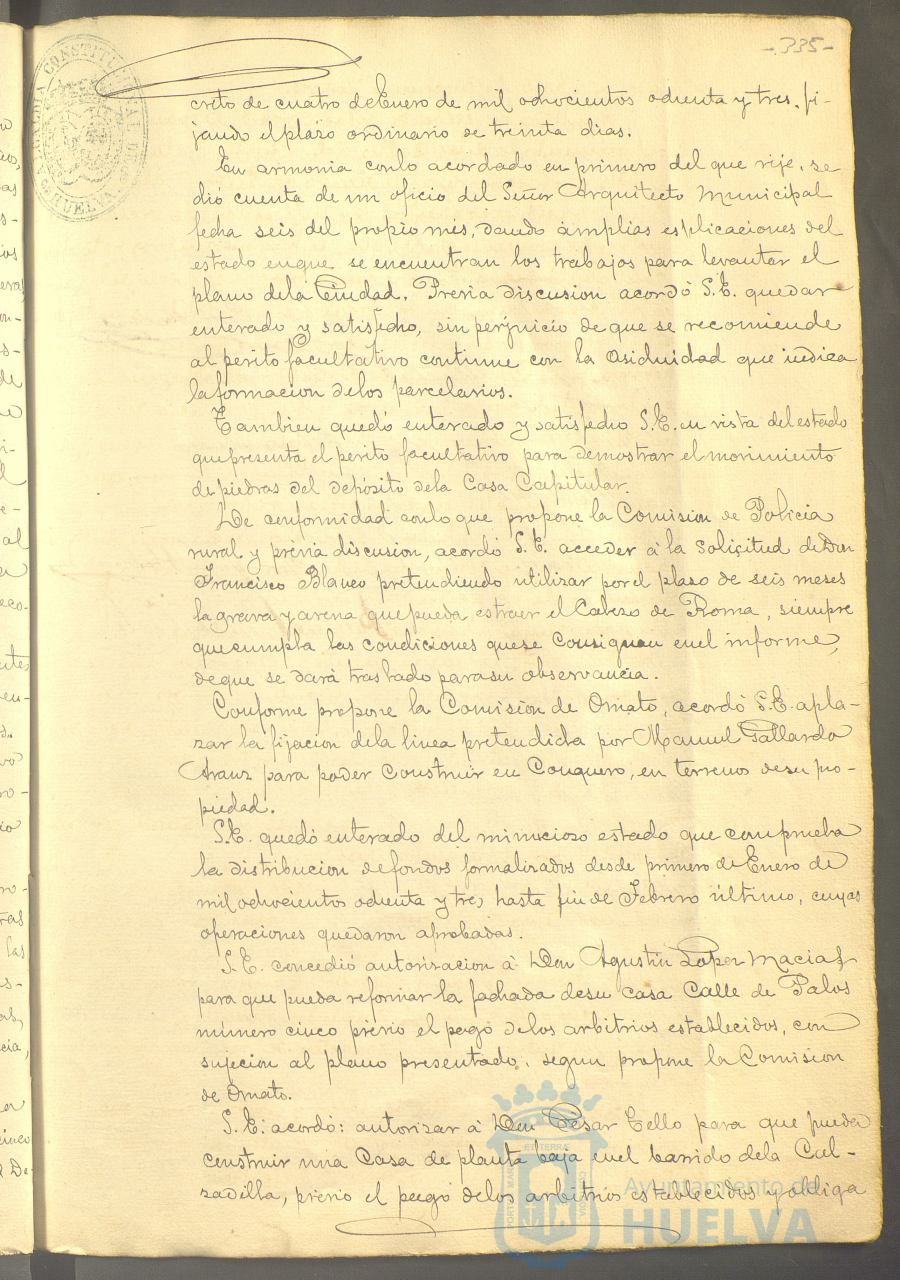 -335-
ALCALDIA CONSTITUCIONAL DE HUELVA
creto de cuatro de Enero de mil ochocientos ochenta y tres, fi-
jando el plazo ordinario de treinta dias.
En armonia con lo acordado en primero del que rije, se
dió cuenta de un oficio del Señor Arquitecto Municipal
fecha seis del propio mes, dando ámplias esplicaciones del
estado en que se encuentran los trabajos para levantar el
plano de la Ciudad. Previa discusion acordó S.E. quedar
enterado y satisfecho, sin perjuicio de que se recomiende
al perito facultativo continue con la asiduidad que indica
la formacion de los parcelarios.
Tambien quedó enterado y satisfecho S.E. en vista del estado
que presenta el perito facultativo para demostrar el movimiento
de piedras del depósito de la Casa Capitular.
De conformidad con lo que propone la Comision de Policia
rural y prévia discusion, acordó S.E. acceder á la solicitud de Don
Francisco Blanco pretendiendo utilizar por el plazo de seis meses
la grava y arena que pueda estraer el Cabezo de Roma, siempre
que cumpla las condiciones que se consignan en el informe,
de que se dará traslado para su observancia.
Conforme propone la Comision de Ornato, acordó S.E. apla-
zar la fijacion de la linea pretendida por Manuel Gallardo
Aranz para poder construir en Conquero, en terrenos de su pro-
piedad.
S.E. quedó enterado del minucioso estado que comprueba
la distribucion de fondos formalizados desde primero de Enero de
mil ochocientos ochenta y tres hasta fin de Febrero último, cuyas
operaciones quedaron aprobadas.
S.E. concedió autorizacion á Don Agustin Lopez Macias
para que pueda reformar la fachada de su casa Calle de Palos
número cinco prévio el pago de los arbitrios establecidos, con
sujecion al plano presentado, segun propone la Comision
de Ornato.
S.E. acordó: autorizar á Don Cesar Tello para que pueda
construir una Casa de planta baja en el barrido de la Cal-
zadilla, prévio el pago de los arbitrios establecidos y obliga
Ayuntamiento de
HUELVA